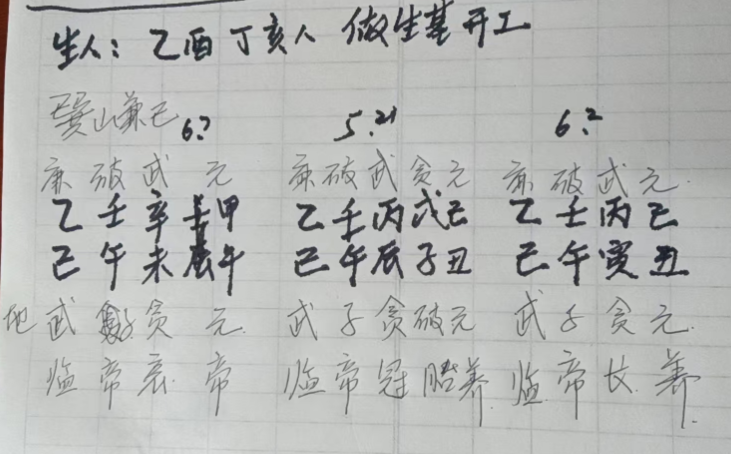 生人：乙酉丁亥人 做生基开工
巽山兼巳 6.? 5.21 6.2
廉破武元 廉破武贪元 廉破武元
乙壬辛壬甲 乙壬丙戊己 乙壬丙己
巳午未辰午 巳午辰子丑 巳午寅丑
地武子贪元 武子贪破元 武子贪元
临帝衰帝 临帝冠胎养 临帝长养